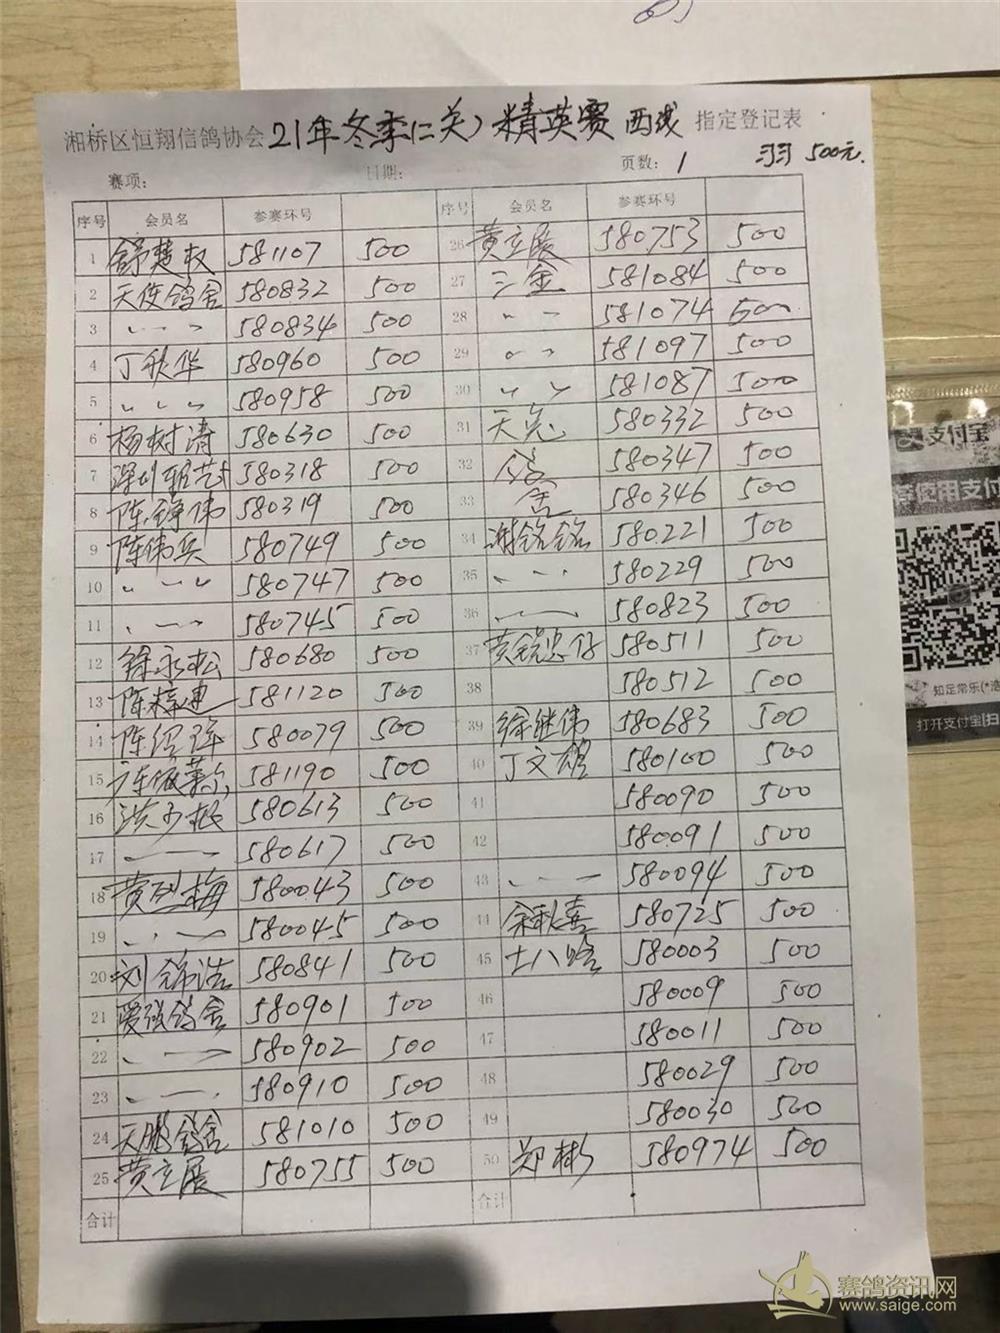 湘桥区恒翔信鸽协会21年冬季(二关)精英赛 西线 指定登记表
赛项: 日期: 页数: 1 羽 500元.
序号 会员名 参赛环号 序号 会员名 参赛环号
1 舒楚权 581107 500 26 黄立展 580753 500
2 天使鸽舍 580832 500 27 三金 581084 500
3 〃 〃 580834 500 28 〃 〃 581074 500
4 丁秋华 580960 500 29 〃 〃 581097 500
5 〃 〃 〃 580958 500 30 〃 〃 581087 500
6 杨树清 580630 500 31 天 580332 500
7 深圳 580318 500 32 鸽 580347 500
8 陈锋伟 580319 500 33 舍 580346 500
9 陈伟兵 580749 500 34 谢铭铭 580221 500
10 〃 〃 〃 580747 500 35 〃 〃 〃 580229 500
11 〃 〃 580745 500 36 〃 〃 580823 500
12 徐永松 580680 500 37 黄锐忠 580511 500
13 陈梓 581120 500 38 580512 500
14 陈 580079 500 39 徐继伟 580683 500
15 陈 581190 500 40 丁文雄 580100 500
16 洪少 580613 500 41 580090 500
17 〃 〃 580617 500 42 580091 500
18 黄烈梅 580043 500 43 〃 〃 580094 500
19 〃 〃 〃 580045 500 44 余秋喜 580725 500
20 刘锦浩 580841 500 45 十八 580003 500
21 爱强鸽舍 580901 500 46 580009 500
22 〃 〃 580902 500 47 580011 500
23 〃 〃 580910 500 48 580029 500
24 天鹏鸽舍 581010 500 49 580030 500
25 黄立展 580755 500 50 郑彬 580974 500
合计 合计
支付宝
使用支付
知足常乐(*洛
打开支付宝[扫
赛鸽资讯网
www.saige.com